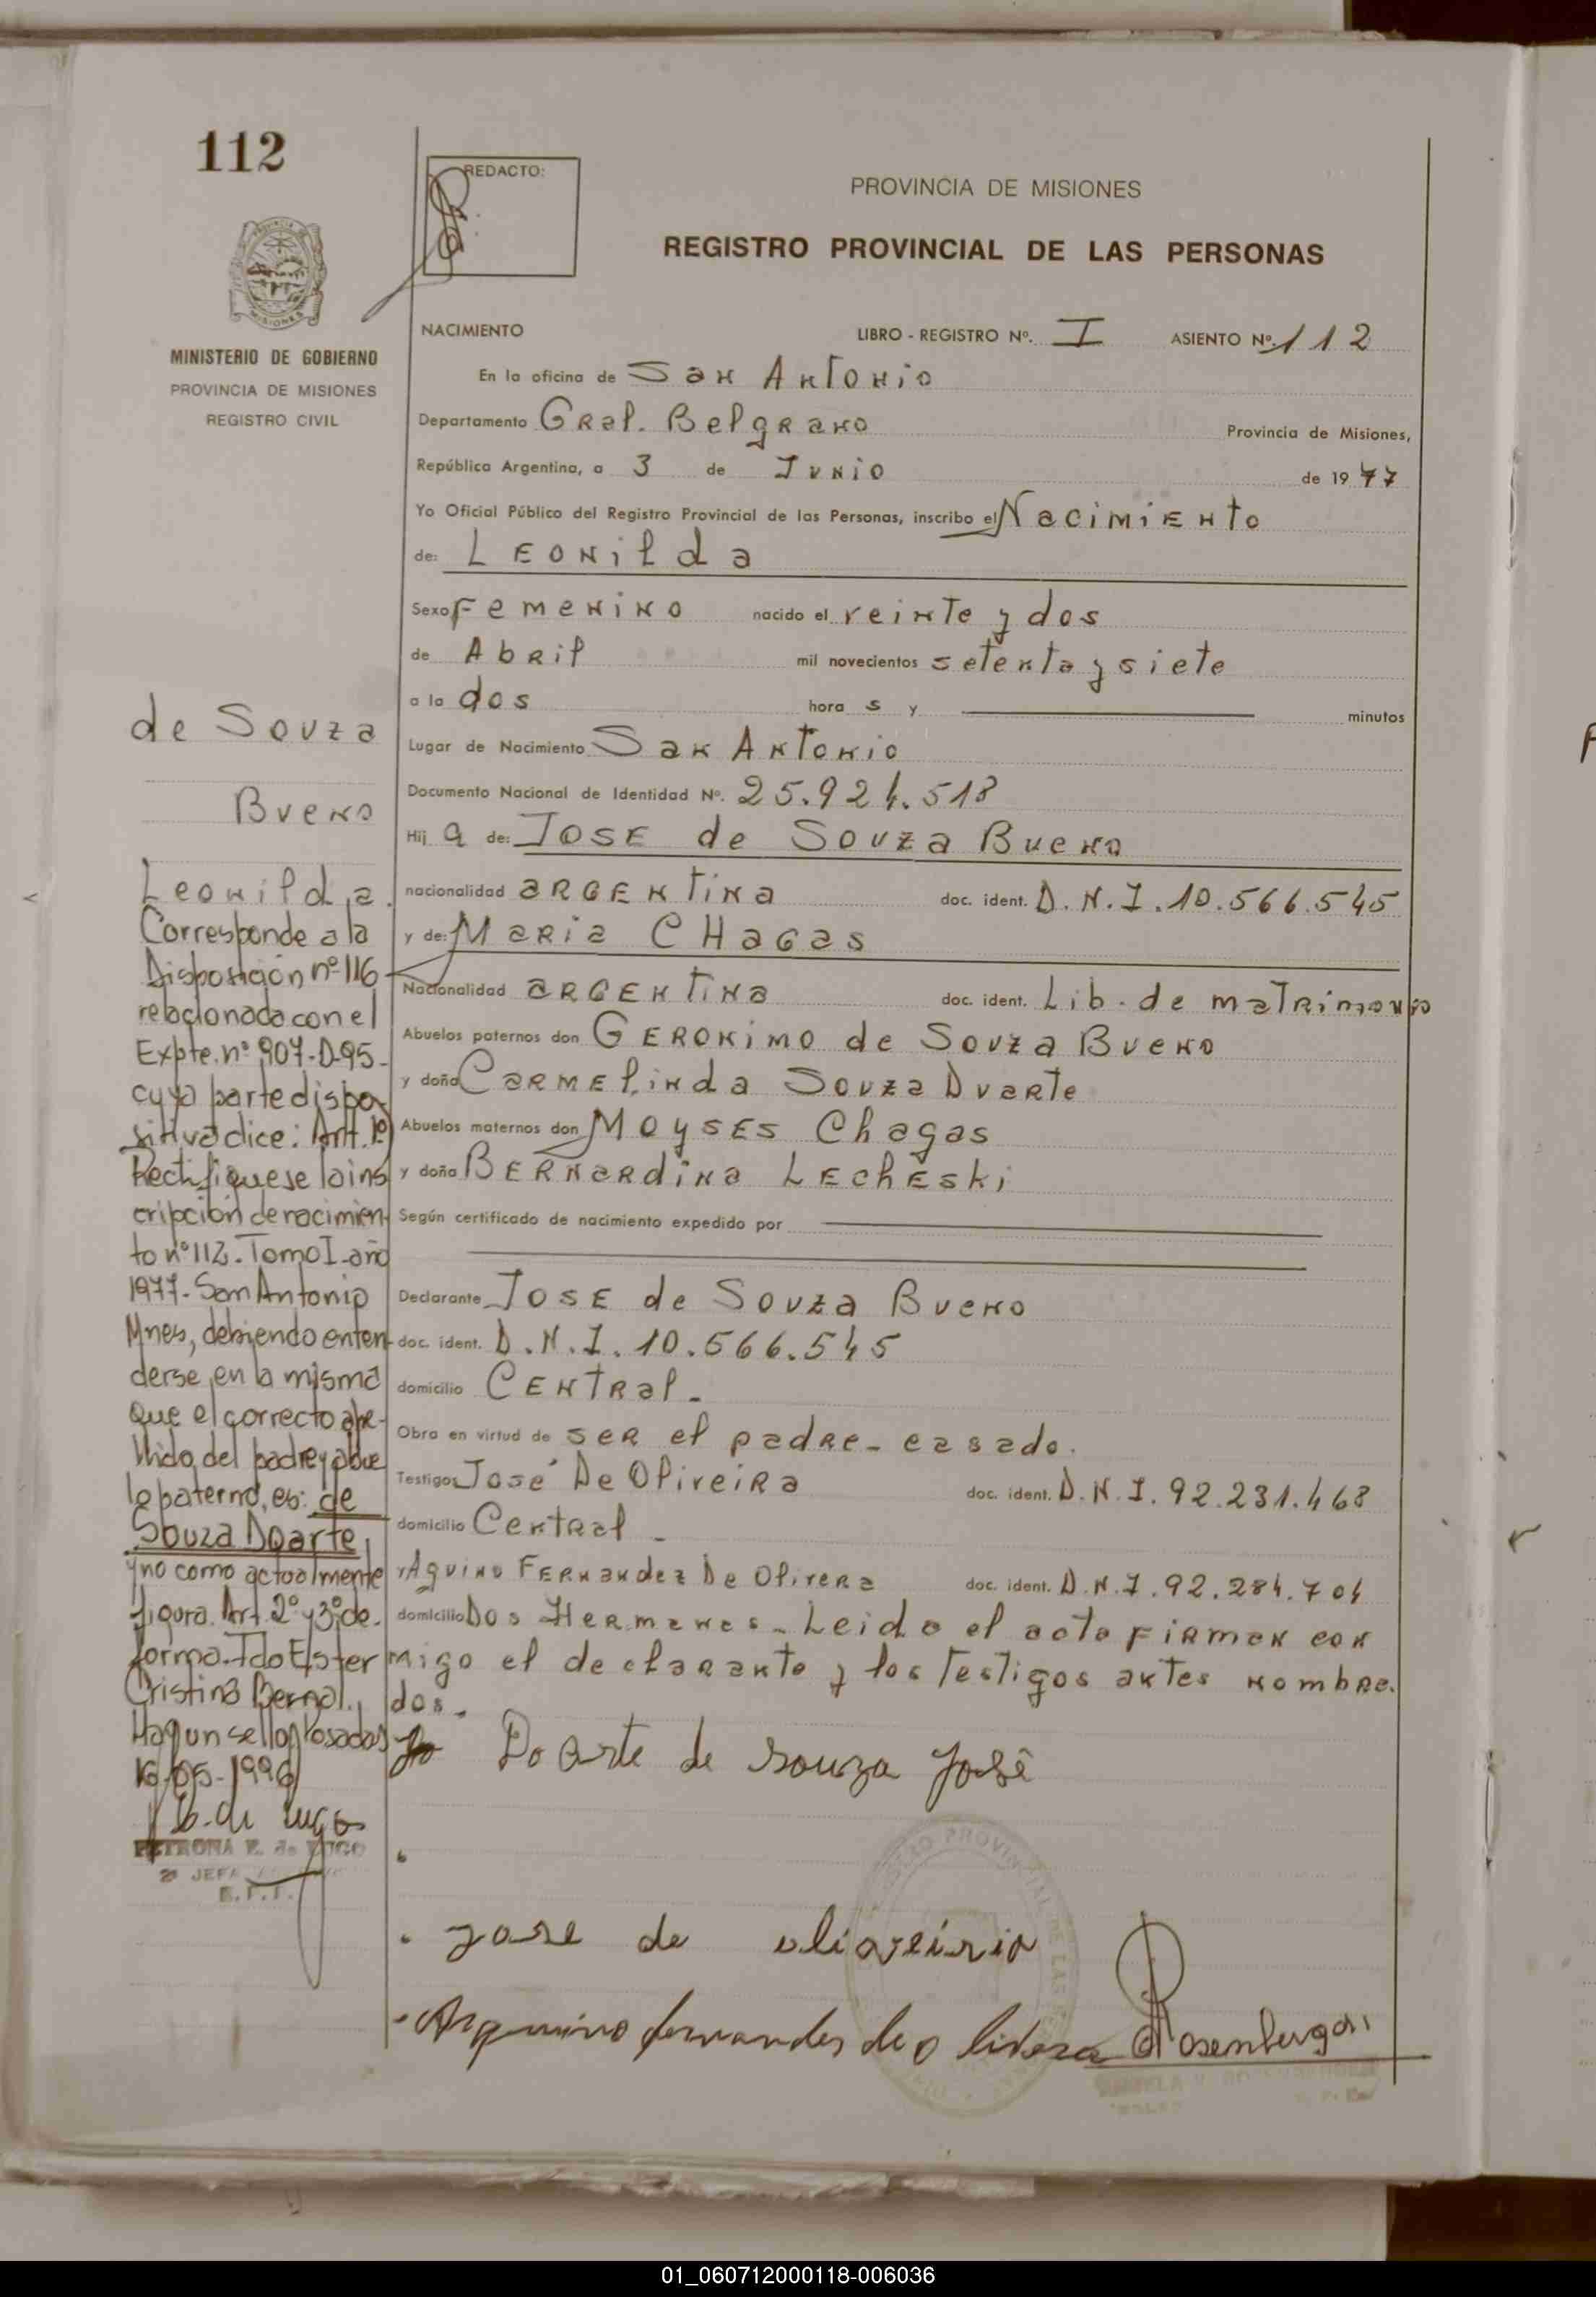 112
REDACTO:
PROVINCIA DE MISIONES
REGISTRO PROVINCIAL DE LAS PERSONAS
MISIONES
MINISTERIO DE GOBIERNO
PROVINCIA DE MISIONES
REGISTRO CIVIL
NACIMIENTO LIBRO - REGISTRO Nº. I ASIENTO Nº. 112
En la oficina de San Antonio
Departamento Gral. Belgrano Provincia de Misiones,
República Argentina, a 3 de Junio de 1977
Yo Oficial Público del Registro Provincial de las Personas, inscribo el Nacimiento
de: Leonilda
Sexo Femenino nacido el veinte y dos
de Abril mil novecientos setenta y siete
a la dos hora s y minutos
Lugar de Nacimiento San Antonio
Documento Nacional de Identidad Nº. 25.924.518
Hij a de: Jose de Souza Bueno
nacionalidad argentina doc. ident. D.N.I. 10.566.545
y de: Maria Chagas
Nacionalidad argentina doc. ident. Lib. de matrimonio
Abuelos paternos don Geronimo de Souza Bueno
y doña Carmelinda Souza Duarte
Abuelos maternos don Moyses Chagas
y doña Bernardina Lecheski
Según certificado de nacimiento expedido por
Declarante Jose de Souza Bueno
doc. ident. D.N.I. 10.566.545
domicilio Central.-
Obra en virtud de ser el padre - casado.
Testigos José De Oliveira doc. ident. D.N.I. 92.231.468
domicilio Central -
y Aquino Fernandez De Olivera doc. ident. D.N.I. 92.284.704
domicilio Dos Hermanas - Leido el acta firman con
migo el declarante y los testigos antes nombra
dos.-
Doarte de Souza José
jose de oliaveiria
Arquimino fernandes de o livera
de Souza
Bueno
Leonilda.
Corresponde a la
Disposición nº 116
relacionada con el
Expte. nº 907-D-95-
cuya parte dispo-
sitiva dice: Art. 1º)
Rectifiquese la ins
cripción de nacimien-
to nº 112. Tomo I año
1977- San Antonio
Mnes, debiendo enten-
derse, en la misma
que el correcto ape-
llido, del padre y abue
lo paterno, es: de
Souza Doarte,
y no como actualmente
figura. Art. 2º y 3º de
forma. Fdo Ester
Cristina Bernal.
Hay un sello, Posadas
-05-1996
PETRONA E. de LUGO
2ª JEFA
01_060712000118-006036